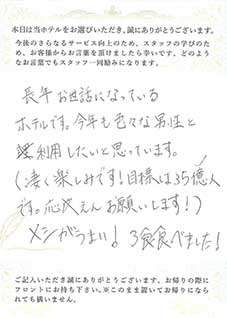 本日は当ホテルをお選びいただき、誠にありがとうございます。
今後のさらなるサービス向上のため、スタッフの学びのため、お客様からお言葉を頂けましたら幸いです。どのようなお言葉でもスタッフ一同励みになります。
長年お世話になっている
ホテルです。今年も色々な男性と
利用したいと思っています。
(凄く楽しみです!目標は35億人
です。応えんお願いします!)
メシがうまい! 3食食べました!
ご記入いただき誠にありがとうございます。お帰りの際に
フロントにお持ち下さい。※このまま置いてお帰りになら
れても構いません。